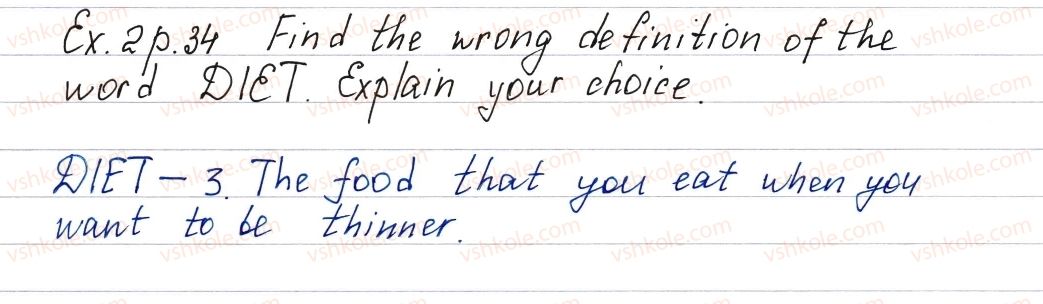 Ex. 2 p. 34 Find the wrong definition of the
word DIET. Explain your choice.
DIET – 3. The food that you eat when you
want to be thinner.